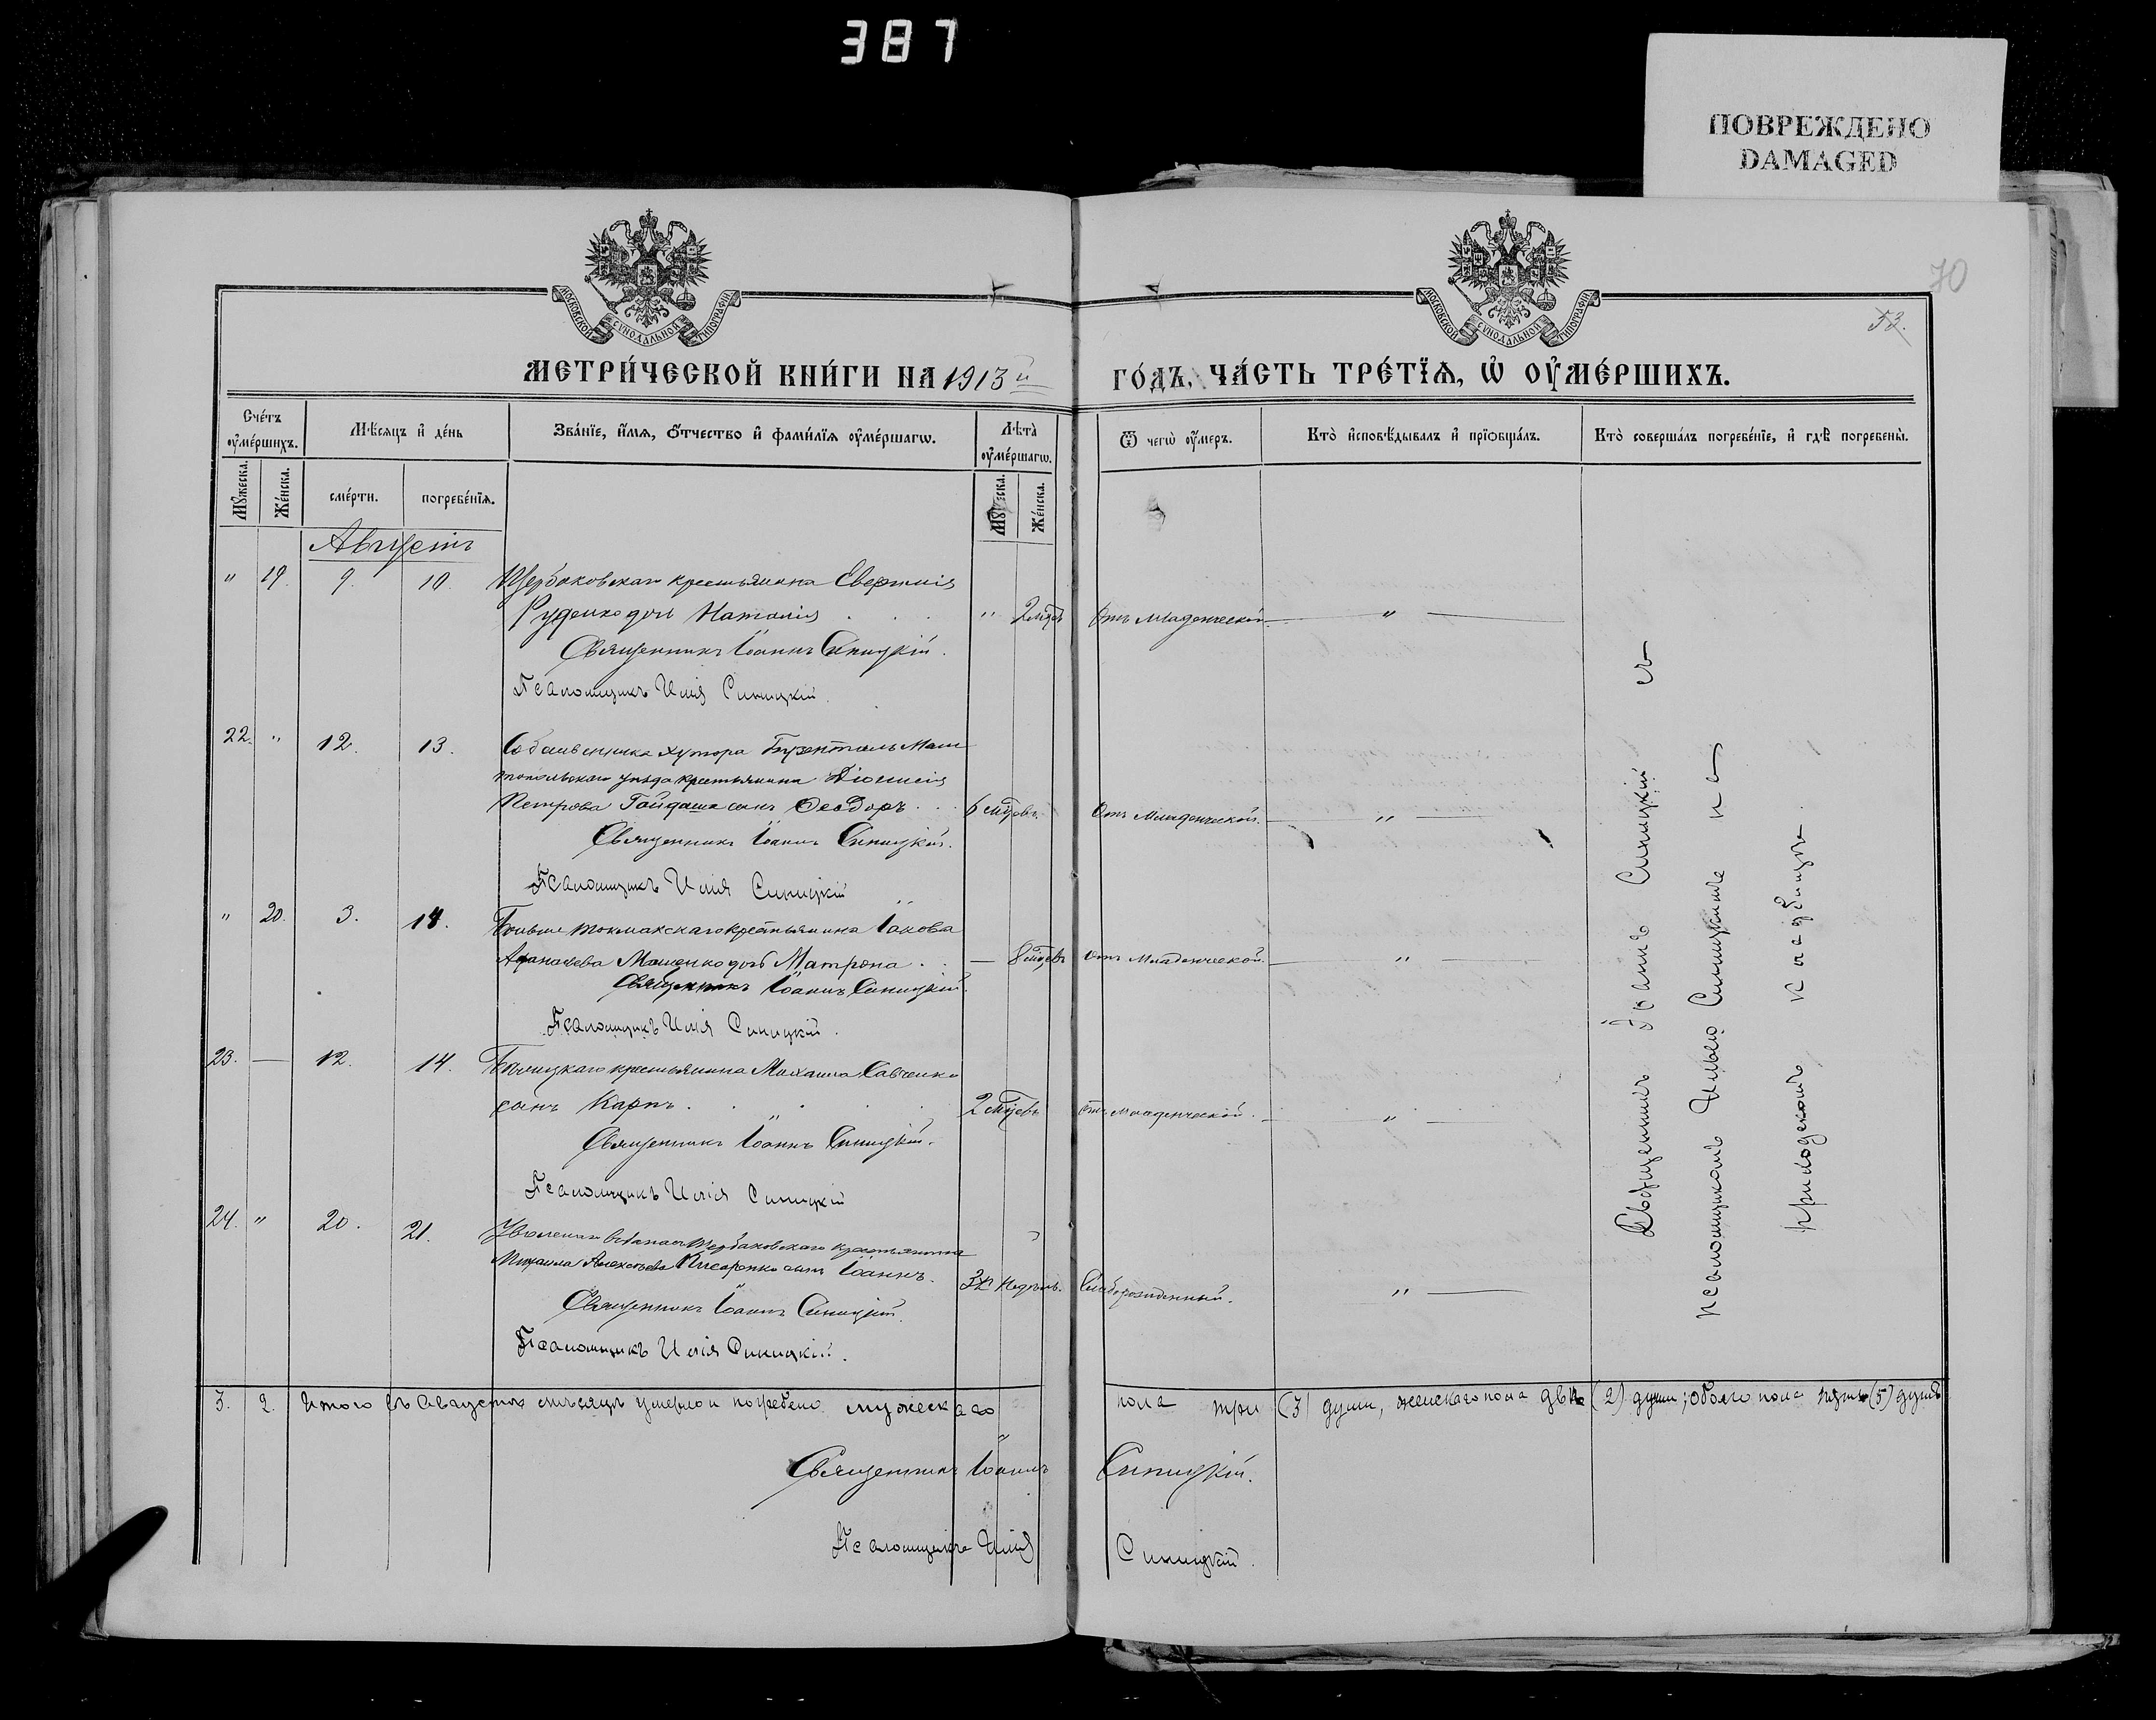 387
ПОВРЕЖДЕНО
DAMAGED
70
53.
МОСКОВСКОЙ СУНОДАЛЬНОЙ ТИПОГРАФІИ
МОСКОВСКОЙ СУНОДАЛЬНОЙ ТИПОГРАФІИ
МЕТРИ́ЧЕСКОЙ КНИ́ГИ НА 1913й ГО́ДЪ, ЧА́СТЬ ТРЕ́ТЇѦ, Ѡ ОУ҆МЕ́РШИХЪ.
Сче́тъ оу҆ме́ршихъ.
Мѣ́сяцъ и҆ де́нь
Зва́нїе, и҆́мѧ, ѻ҆́тчество и҆ фами́лїѧ оу҆ме́ршагѡ.
Лѣта̀ оу҆ме́ршагѡ.
Ѿ чегѡ̀ оу҆́меръ.
Кто̀ и҆сповѣ́дывалъ и҆ прїѡбща́лъ.
Кто̀ соверша́лъ погребе́нїе, и҆ гдѣ̀ погребены̀.
Мꙋ́жеска. Же́нска. сме́рти. погребе́нїѧ. Же́нска.
Августъ
" 19. 9. 10. Щербаковскаго крестьянина Евфимія
Руденко дочь Наталія " 2 мѣсц. Отъ младенческой. "
Священникъ Іоаннъ Синицкій.
Псаломщикъ Илія Синицкій.
22. " 12. 13. Собственника хутора Мели
топольскаго уѣзда крестьянина Діонисія
Петрова Гайдаша сынъ Ѳеодоръ 6 мѣсцевъ. Отъ Младенческой. "
Священникъ Іоаннъ Синицкій.
Псаломщикъ Илія Синицкій
" 20. 3. 14. Больше Токмакскаго крестьянина Іакова
Афанасьева Мащенко дочь Матрона — 8 мѣсцевъ Отъ Младенческой. "
Священникъ Іоаннъ Синицкій.
Псаломщикъ Илія Синицкій.
23. — 12. 14. крестьянина Михаила Савченко
сынъ Карпъ. 2 мѣсцевъ Отъ Младенческой. "
Священникъ Іоаннъ Синицкій.
Псаломщикъ Илія Синицкій
24. " 20. 21. Щербаковскаго крестьянина
Михаила Алексѣева Писаренко сынъ Іоаннъ. 3х недѣль. Слаборожденный. "
Священникъ Іоаннъ Синицкій.
Псаломщикъ Илія Синицкій.
Священникъ Іоаннъ Синицкій съ
псаломщикомъ Ильею Синицкимъ на
приходскомъ кладбищѣ.
3. 2. Итого въ Августѣ мѣсяцѣ умерло и погребено мужескаго пола три (3) души, женскаго пола двѣ (2) души; обоего пола пять (5) душъ
Священникъ Іоаннъ Синицкій.
Псаломщикъ Илія Синицкій.